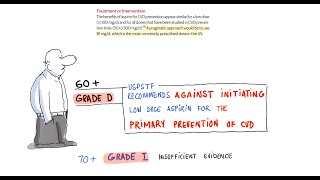 Treatment or Intervention
The benefits of aspirin for CVD prevention appear similar for a low dose
(≤100 mg/d) and for all doses that have been studied in CVD preven-
tion trials (50 to 500 mg/d). A pragmatic approach would be to use
81 mg/d, which is the most commonly prescribed dose in the US.
60+
GRADE D
USPSTF
RECOMMENDS AGAINST INITIATING
LOW DOSE ASPIRIN FOR THE
PRIMARY PREVENTION OF CVD
70+ GRADE I INSUFFICIENT EVIDENCE